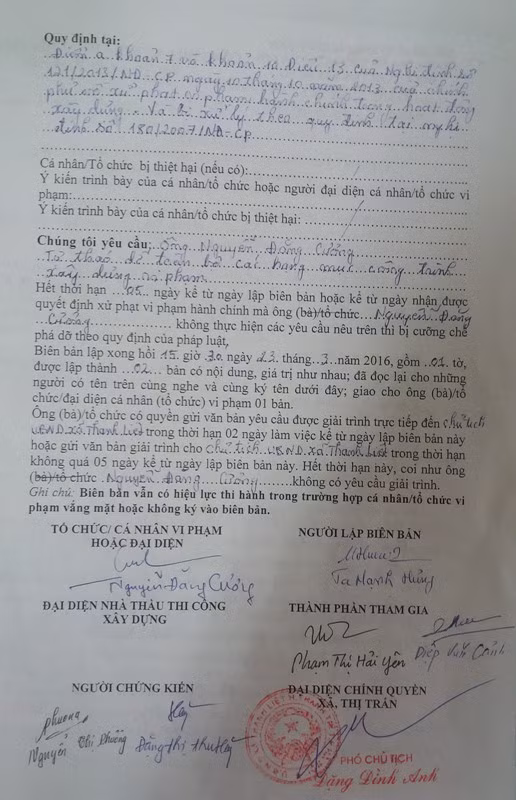 Quy định tại:
Điểm a khoản 7 và khoản 10 Điều 13 của Nghị định số
121/2013/NĐ-CP ngày 10 tháng 10 năm 2013 của chính
phủ về xử phạt vi phạm hành chính trong hoạt động
xây dựng. Và bị xử lý theo quy định tại nghị
định số 180/2007/NĐ-CP
Cá nhân/Tổ chức bị thiệt hại (nếu có):
Ý kiến trình bày của cá nhân/tổ chức hoặc người đại diện cá nhân/tổ chức vi
phạm:
Ý kiến trình bày của cá nhân/tổ chức bị thiệt hại:
Chúng tôi yêu cầu: Ông Nguyễn Đăng Cường
Tự tháo dỡ toàn bộ các hạng mục công trình
xây dựng vi phạm
Hết thời hạn 05 ngày kể từ ngày lập biên bản hoặc kể từ ngày nhận được
quyết định xử phạt vi phạm hành chính mà ông (bà)/tổ chức Nguyễn Đăng
Cường không thực hiện các yêu cầu nêu trên thì bị cưỡng chế
phá dỡ theo quy định của pháp luật,
Biên bản lập xong hồi 15 giờ 30 ngày 23 tháng 3 năm 2016, gồm 01 tờ,
được lập thành 02 bản có nội dung, giá trị như nhau; đã đọc lại cho những
người có tên trên cùng nghe và cùng ký tên dưới đây; giao cho ông (bà)/tổ
chức/đại diện cá nhân (tổ chức) vi phạm 01 bản.
Ông (bà)/tổ chức có quyền gửi văn bản yêu cầu được giải trình trực tiếp đến chủ tịch
UBND xã Thanh Liệt trong thời hạn 02 ngày làm việc kể từ ngày lập biên bản này
hoặc gửi văn bản giải trình cho Chủ tịch UBND xã Thanh Liệt trong thời hạn
không quá 05 ngày kể từ ngày lập biên bản này. Hết thời hạn này, coi như ông
(bà)/tổ chức Nguyễn Đăng Cường không có yêu cầu giải trình.
Ghi chú: Biên bản vẫn có hiệu lực thi hành trong trường hợp cá nhân/tổ chức vi
phạm vắng mặt hoặc không ký vào biên bản.
TỔ CHỨC/ CÁ NHÂN VI PHẠM
HOẶC ĐẠI DIỆN
Nguyễn Đăng Cường
NGƯỜI LẬP BIÊN BẢN
Tạ Mạnh Hùng
ĐẠI DIỆN NHÀ THẦU THI CÔNG
XÂY DỰNG
THÀNH PHẦN THAM GIA
Phạm Thị Hải Yên
Diệp Văn Cảnh
NGƯỜI CHỨNG KIẾN
Phương
Nguyễn Thị Phương
Đặng Thị Thu
ĐẠI DIỆN CHÍNH QUYỀN
XÃ, THỊ TRẤN
PHÓ CHỦ TỊCH
Đặng Đình Anh